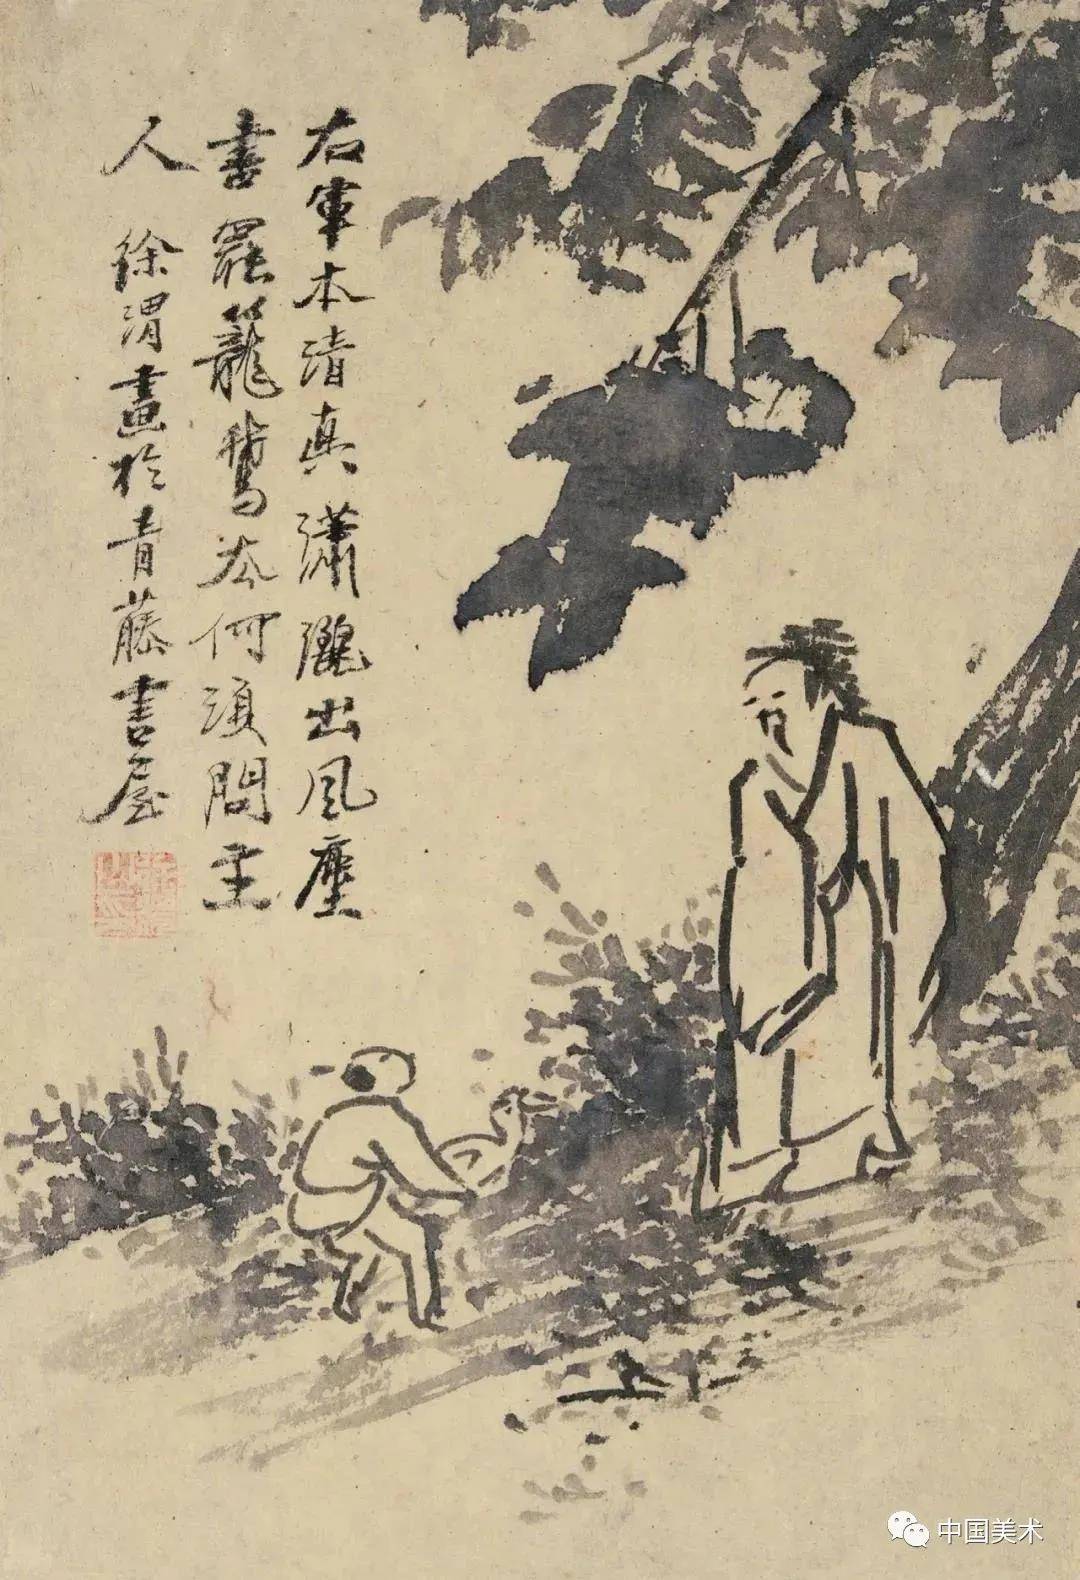 右軍本清真瀟灑出風塵
書罷籠鵝去何須問主
人 徐渭畫於青藤書屋
中国美术